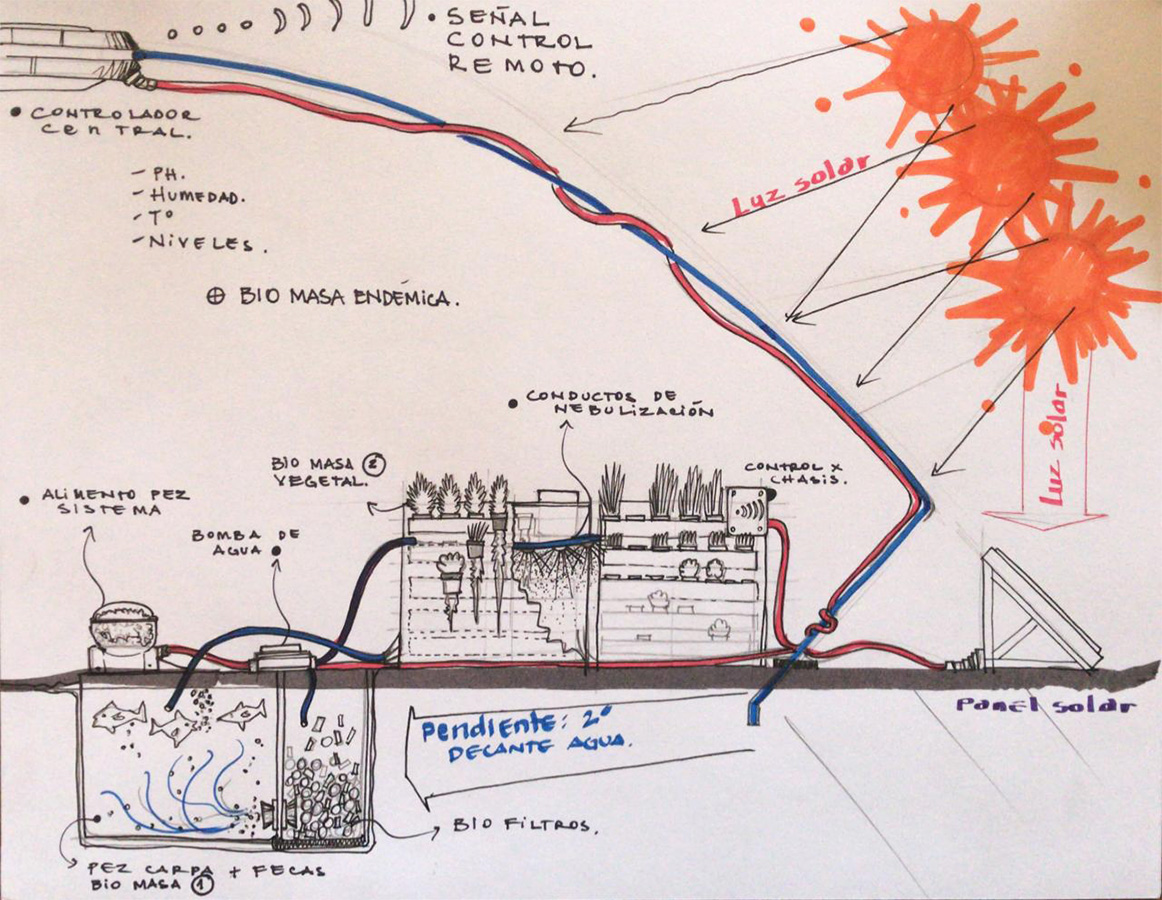 • SEÑAL
CONTROL
REMOTO.
• CONTROLADOR
CenTRAL.
- PH.
- HUMEDAD.
- Tº
- NiVELES.
⊕ BIO MASA ENDÉMICA.
Luz solar
Luz solar
• CONDUCTOS DE
NEBULIZACIÓN
BIO MASA ②
VEGETAL.
CONTROL X
CHASIS.
• ALIMENTO PEZ
SISTEMA
BOMBA DE
AGUA •
Panel solar
Pendiente: 2º
DECANTE AGUA.
BIO FILTROS.
PEZ CARPA + FECAS
BIO MASA ①